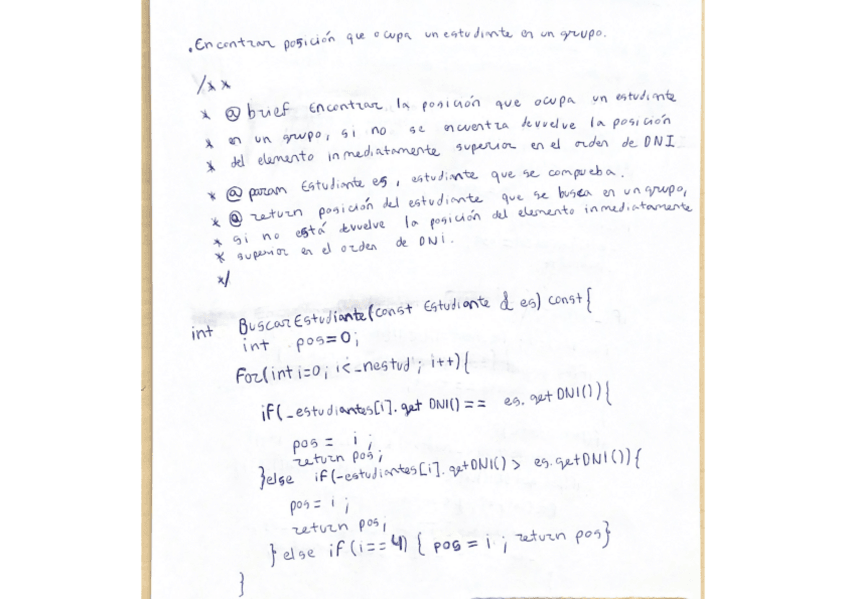 . Encontrar posición que ocupa un estudiante en un grupo.
/**
* @ brief Encontrar la posición que ocupa un estudiante
* en un grupo, si no se encuentra devuelve la posición
* del elemento inmediatamente superior en el orden de DNI
* @ param Estudiante es, estudiante que se comprueba.
* @ return posición del estudiante que se busca en un grupo,
* si no está devuelve la posición del elemento inmediatamente
* superior en el orden de DNi.
*/
int BuscarEstudiante(const Estudiante & es) const{
int pos=0;
For(int i=0; i<_nestud; i++){
if(_estudiantes[i].get DNI()== es.get DNI()){
pos = i ;
return pos;
}else if(_estudiantes[i].getDNI() > es.getDNI()){
pos = i ;
return pos;
} else if (i==4) { pos = i ; return pos}
}